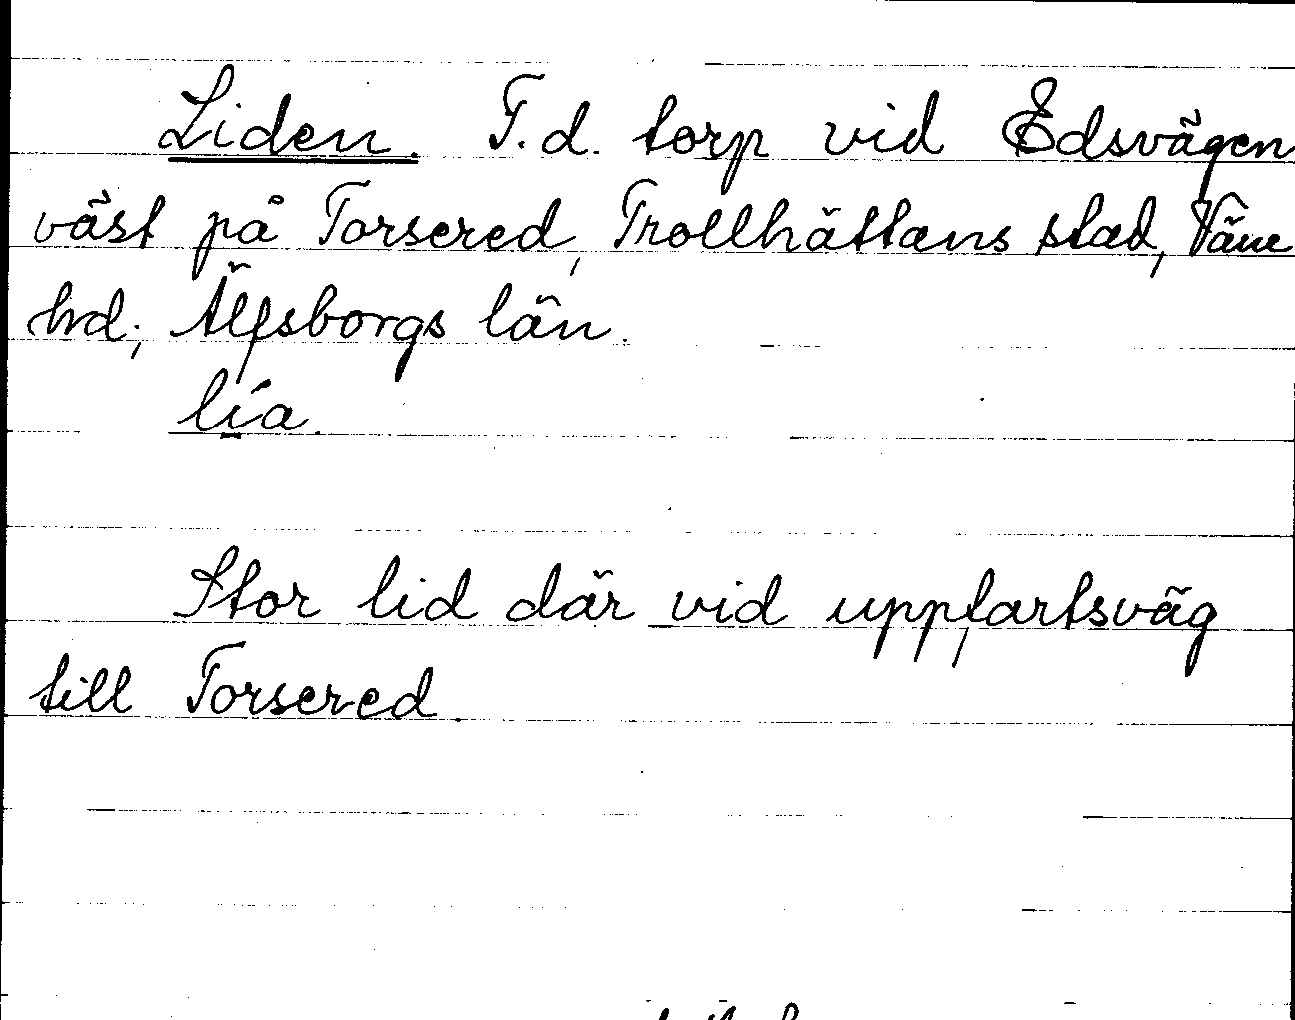 Liden. F.d. torp vid Edsvägen
väst på Torsered, Trollhättans stad, Väne
hd; Älfsborgs län.
lía.
Stor lid där vid uppfartsväg
till Torsered.